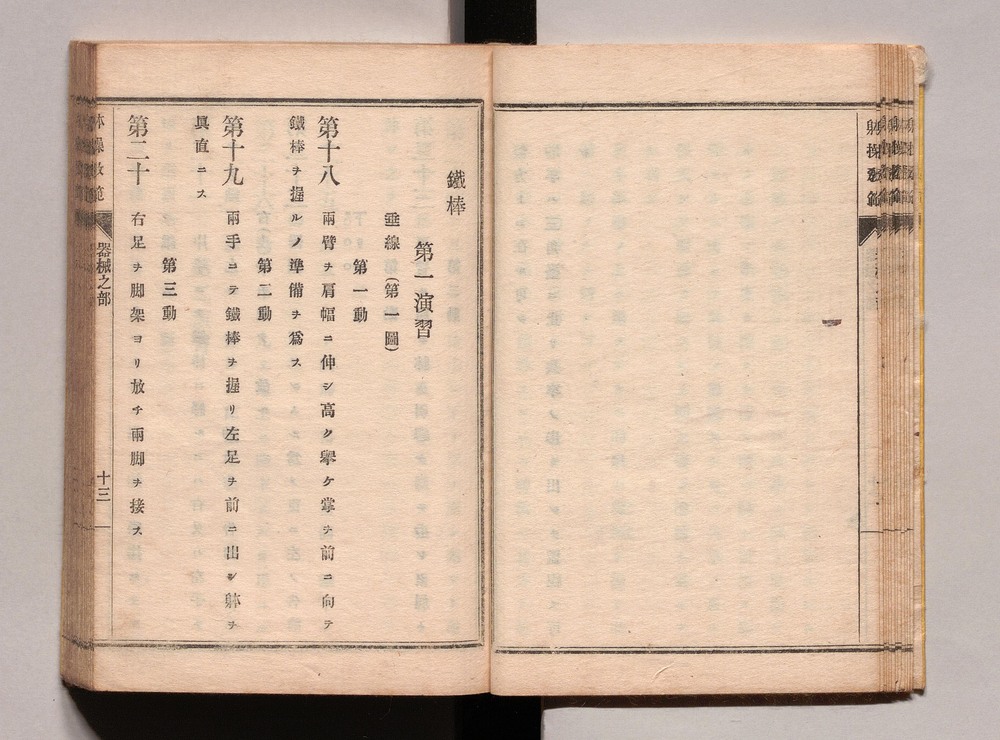 躰操教範
鐵棒
第一演習
垂線(第一圖)
第一動
第十八 兩臂ヲ肩幅ニ伸シ高ク擧ケ掌ヲ前ニ向テ
鐵棒ヲ握ルノ準備ヲ爲ス
第二動
第十九 兩手ニテ鐵棒ヲ握リ左足ヲ前ニ出シ躰ヲ
眞直ニス
第三動
第二十 右足ヲ脚架ヨリ放チ兩脚ヲ接ス
器械之部
十三